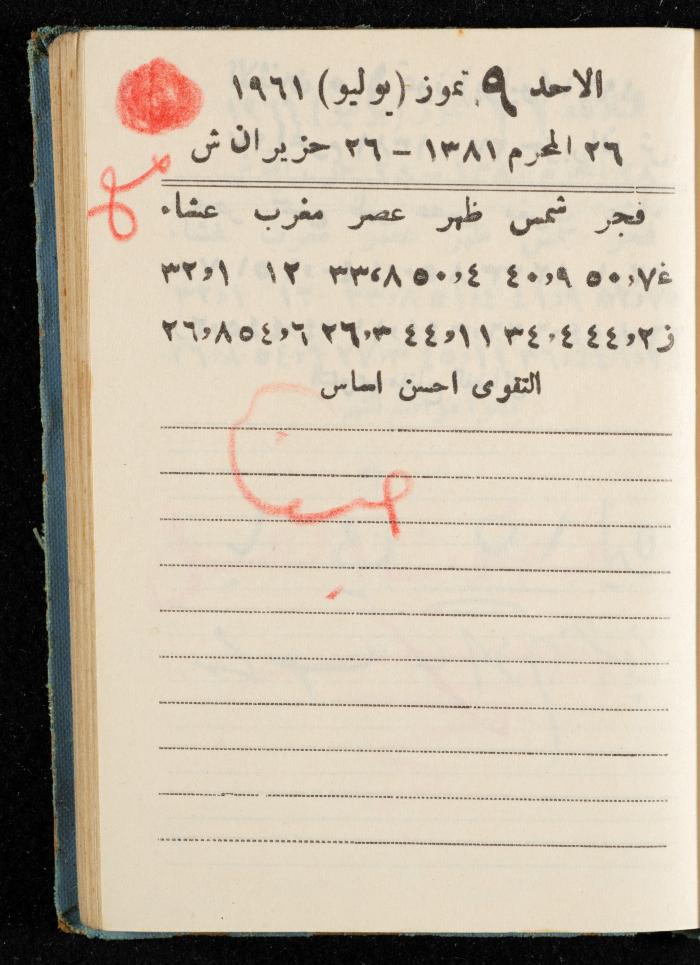 الاحد ٩ تموز (يوليو) ١٩٦١
٢٦ المحرم ١٣٨١ – ٢٦ حزيران ش
فجر شمس ظهر عصر مغرب عشاء
غ ٧,٥٠ ٩,٤٠ ٤,٥٠ ٨,٣٣ ١٢ ١,٣٢
ز ٢,٤٤ ٤,٣٤ ١١,٤٤ ٣,٢٦ ٦,٥٤ ٨,٢٦
التقوى احسن اساس